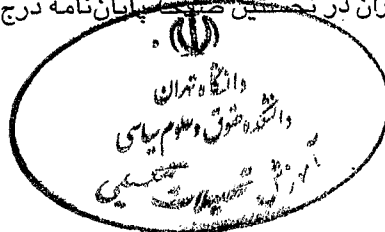 ران در نخستین صفحه پایان‌نامه درج
دانشگاه تهران
دانشکده حقوق و علوم سیاسی
آموزش تحصیلات تکمیلی